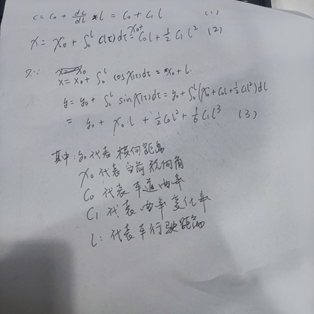 C = C₀ + dc/dl · l = C₀ + C₁l (1)
χ = χ₀ + ∫₀ˡ C(τ)dτ = χ₀ + C₀l + ½C₁l² (2)
x = x₀ + ∫₀ˡ cosχ(τ)dτ = x₀ + l
y = y₀ + ∫₀ˡ sinχ(τ)dτ = y₀ + ∫₀ˡ(χ₀ + C₀l + ½C₁l²)dl
= y₀ + χ₀·l + ½C₀l² + ⅙C₁l³ (3)
其中: y₀代表横向距离
χ₀代表当前航向角
C₀代表车道曲率
C₁代表曲率变化率
l: 代表车行驶距离